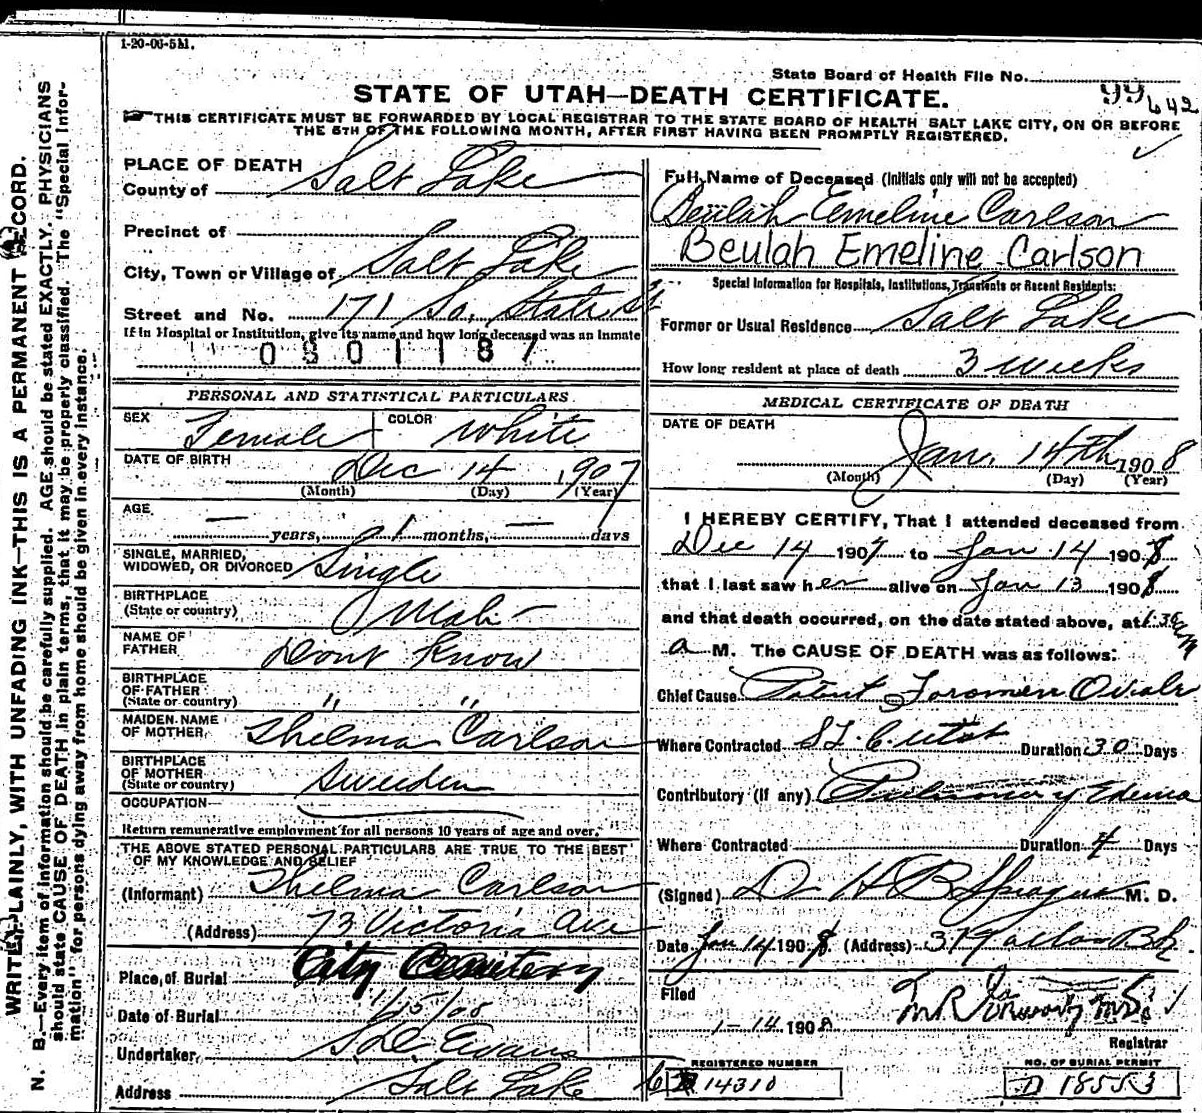 1-20-06-5M.
State Board of Health File No. 99 642
STATE OF UTAH—DEATH CERTIFICATE.
THIS CERTIFICATE MUST BE FORWARDED BY LOCAL REGISTRAR TO THE STATE BOARD OF HEALTH SALT LAKE CITY, ON OR BEFORE
THE 5TH OF THE FOLLOWING MONTH, AFTER FIRST HAVING BEEN PROMPTLY REGISTERED.
WRITE PLAINLY, WITH UNFADING INK—THIS IS A PERMANENT RECORD.
N. B.—Every item of information should be carefully supplied. AGE should be stated EXACTLY. PHYSICIANS
should state CAUSE OF DEATH in plain terms, that it may be properly classified. The "Special Infor-
mation" for persons dying away from home should be given in every instance.
PLACE OF DEATH
County of Salt Lake
Precinct of
City, Town or Village of Salt Lake
Street and No. 171 So. State St
If in Hospital or Institution, give its name and how long deceased was an inmate
0801187
PERSONAL AND STATISTICAL PARTICULARS
SEX Female COLOR White
DATE OF BIRTH Dec 14 1907
(Month) (Day) (Year)
AGE
— years, 1 months, — days
SINGLE, MARRIED,
WIDOWED, OR DIVORCED Single
BIRTHPLACE
(State or country) Utah
NAME OF
FATHER Dont Know
BIRTHPLACE
OF FATHER
(State or country) " "
MAIDEN NAME
OF MOTHER Thelma Carlson
BIRTHPLACE
OF MOTHER
(State or country) Sweden
OCCUPATION
Return remunerative employment for all persons 10 years of age and over.
THE ABOVE STATED PERSONAL PARTICULARS ARE TRUE TO THE BEST
OF MY KNOWLEDGE AND BELIEF
(Informant) Thelma Carlson
(Address) 73 Victoria Ave
Place of Burial City Cemetery
Date of Burial 1/15/08
Undertaker Evans
Address Salt Lake
Full Name of Deceased (Initials only will not be accepted)
Beulah Emeline Carlson
Beulah Emeline Carlson
Special Information for Hospitals, Institutions, Transients or Recent Residents:
Former or Usual Residence Salt Lake
How long resident at place of death 3 weeks
MEDICAL CERTIFICATE OF DEATH
DATE OF DEATH
Jan. 14th 1908
(Month) (Day) (Year)
I HEREBY CERTIFY, That I attended deceased from
Dec 14 1907 to Jan 14 1908
that I last saw her alive on Jan 13 1908
and that death occurred, on the date stated above, at
a M. The CAUSE OF DEATH was as follows:
Chief Cause Patent Foramen Ovale
Where Contracted S L C Utah Duration 30 Days
Contributory (if any) Pulmonary Edema
Where Contracted Duration Days
(Signed) D H B Sprague M. D.
Date Jan 14 1908 (Address)
Filed
1-14 1908
Registrar
REGISTERED NUMBER
14310
NO. OF BURIAL PERMIT
D 18553